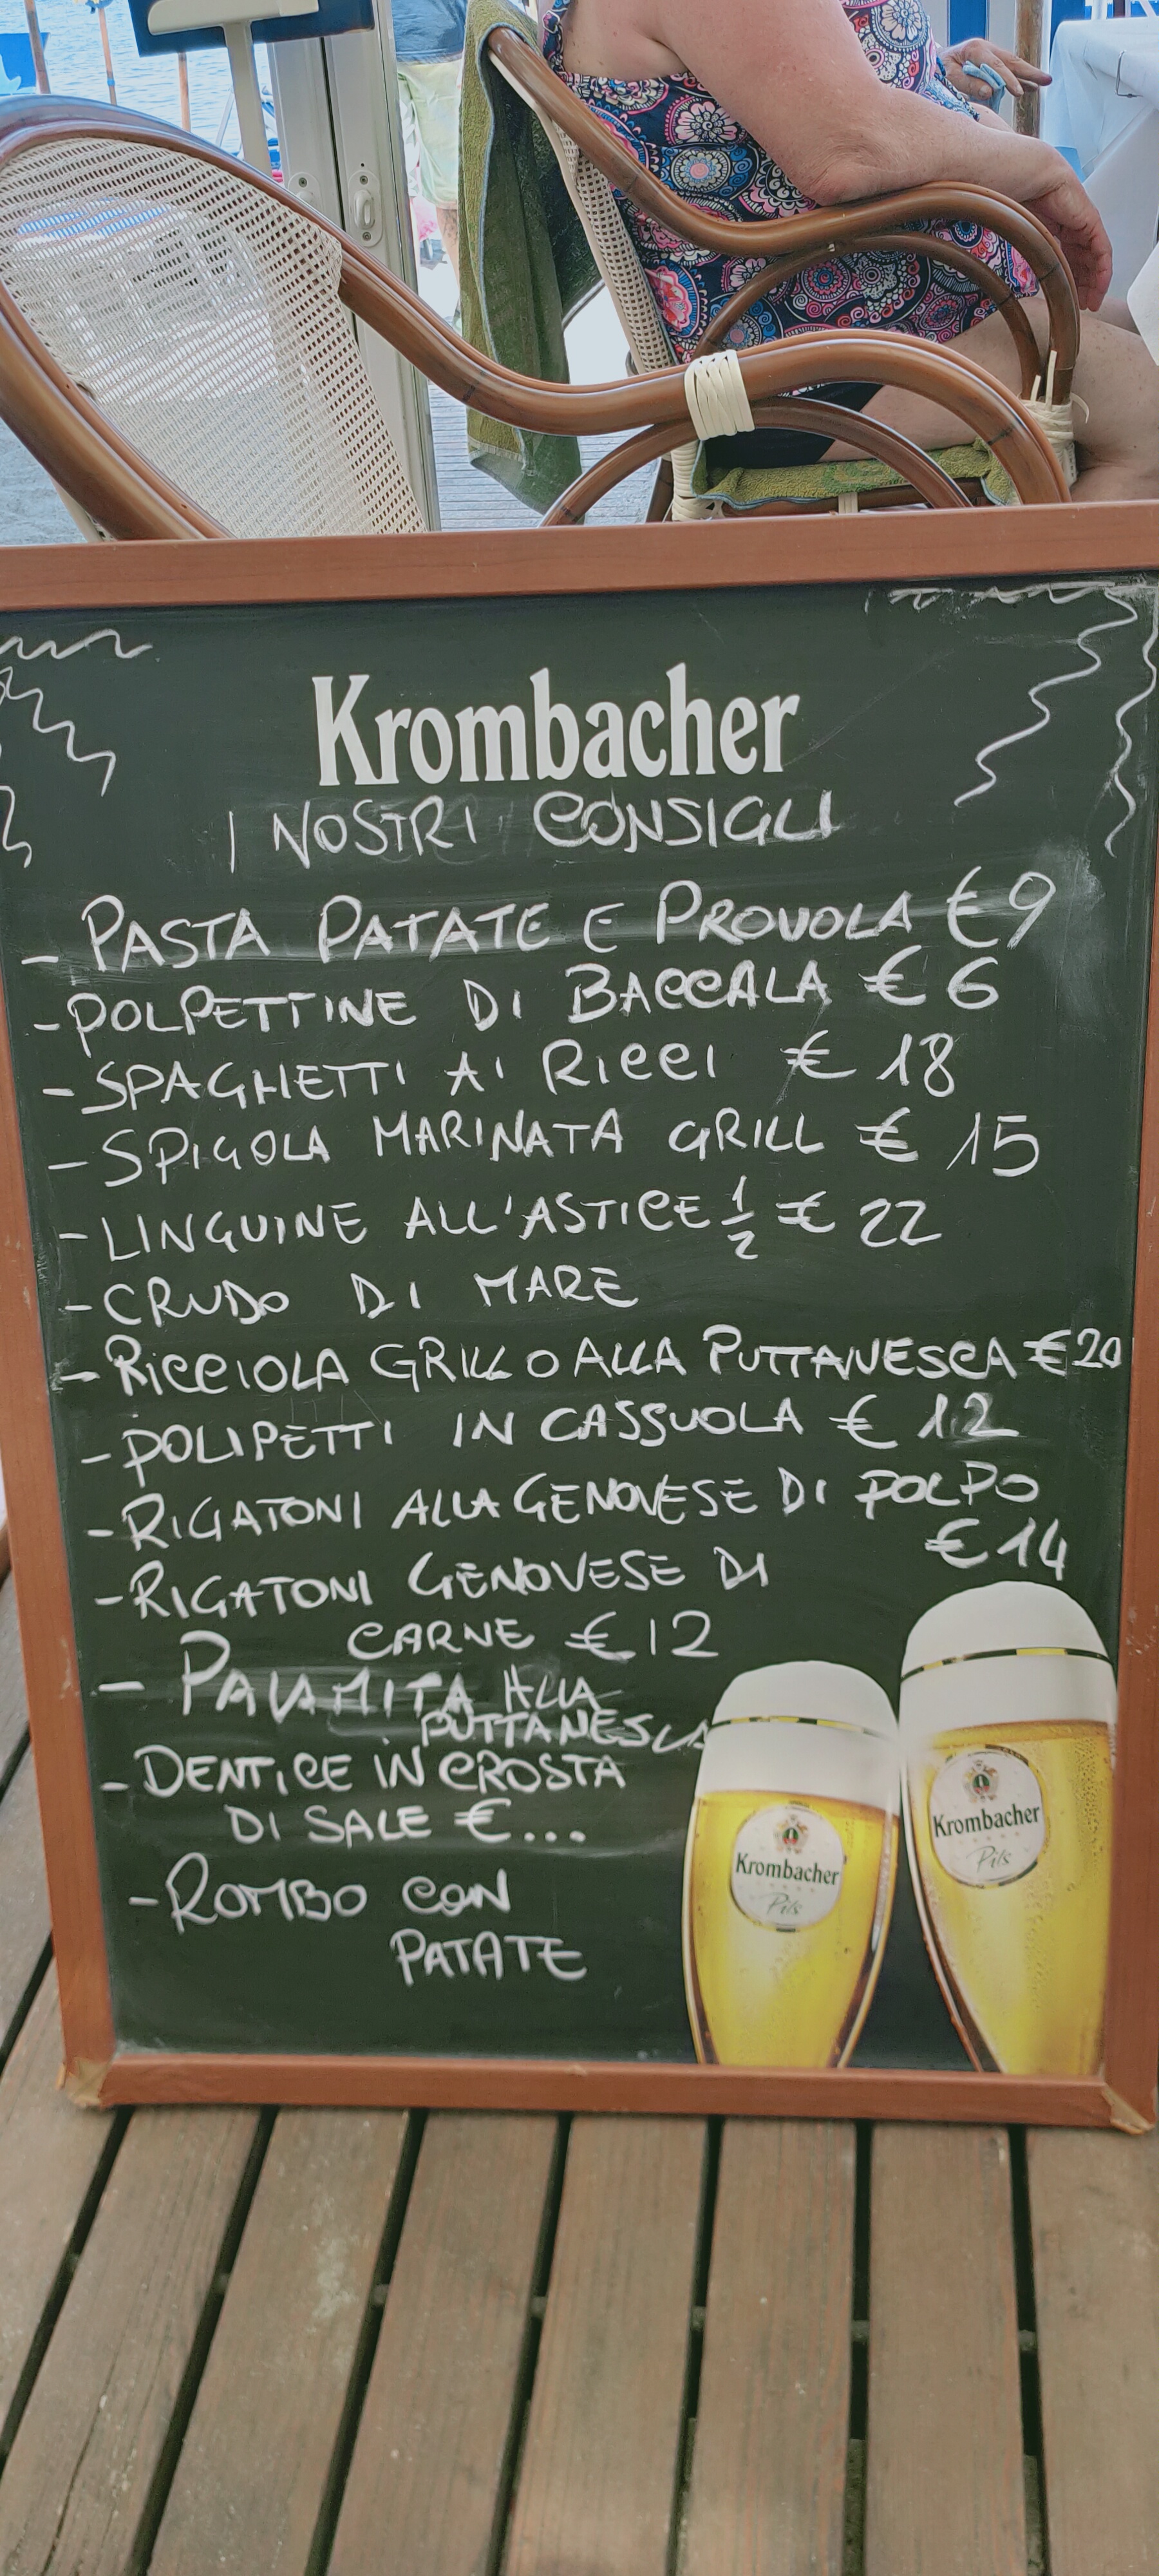 Krombacher
I NOSTRI CONSIGLI
- PASTA PATATE E PROVOLA €9
- POLPETTINE DI BACCALA € 6
- SPAGHETTI AI RICCI € 18
- SPIGOLA MARINATA GRILL € 15
- LINGUINE ALL'ASTICE 1/2 € 22
- CRUDO DI MARE
- RICCIOLA GRILL O ALLA PUTTANESCA €20
- POLIPETTI IN CASSUOLA € 12
- RIGATONI ALLA GENOVESE DI POLPO
€14
- RIGATONI GENOVESE DI
CARNE €12
- PALAMITA ALLA
PUTTANESCA
- DENTICE IN CROSTA
DI SALE €...
- ROMBO CON
PATATE
Krombacher
Pils
Krombacher
Pils